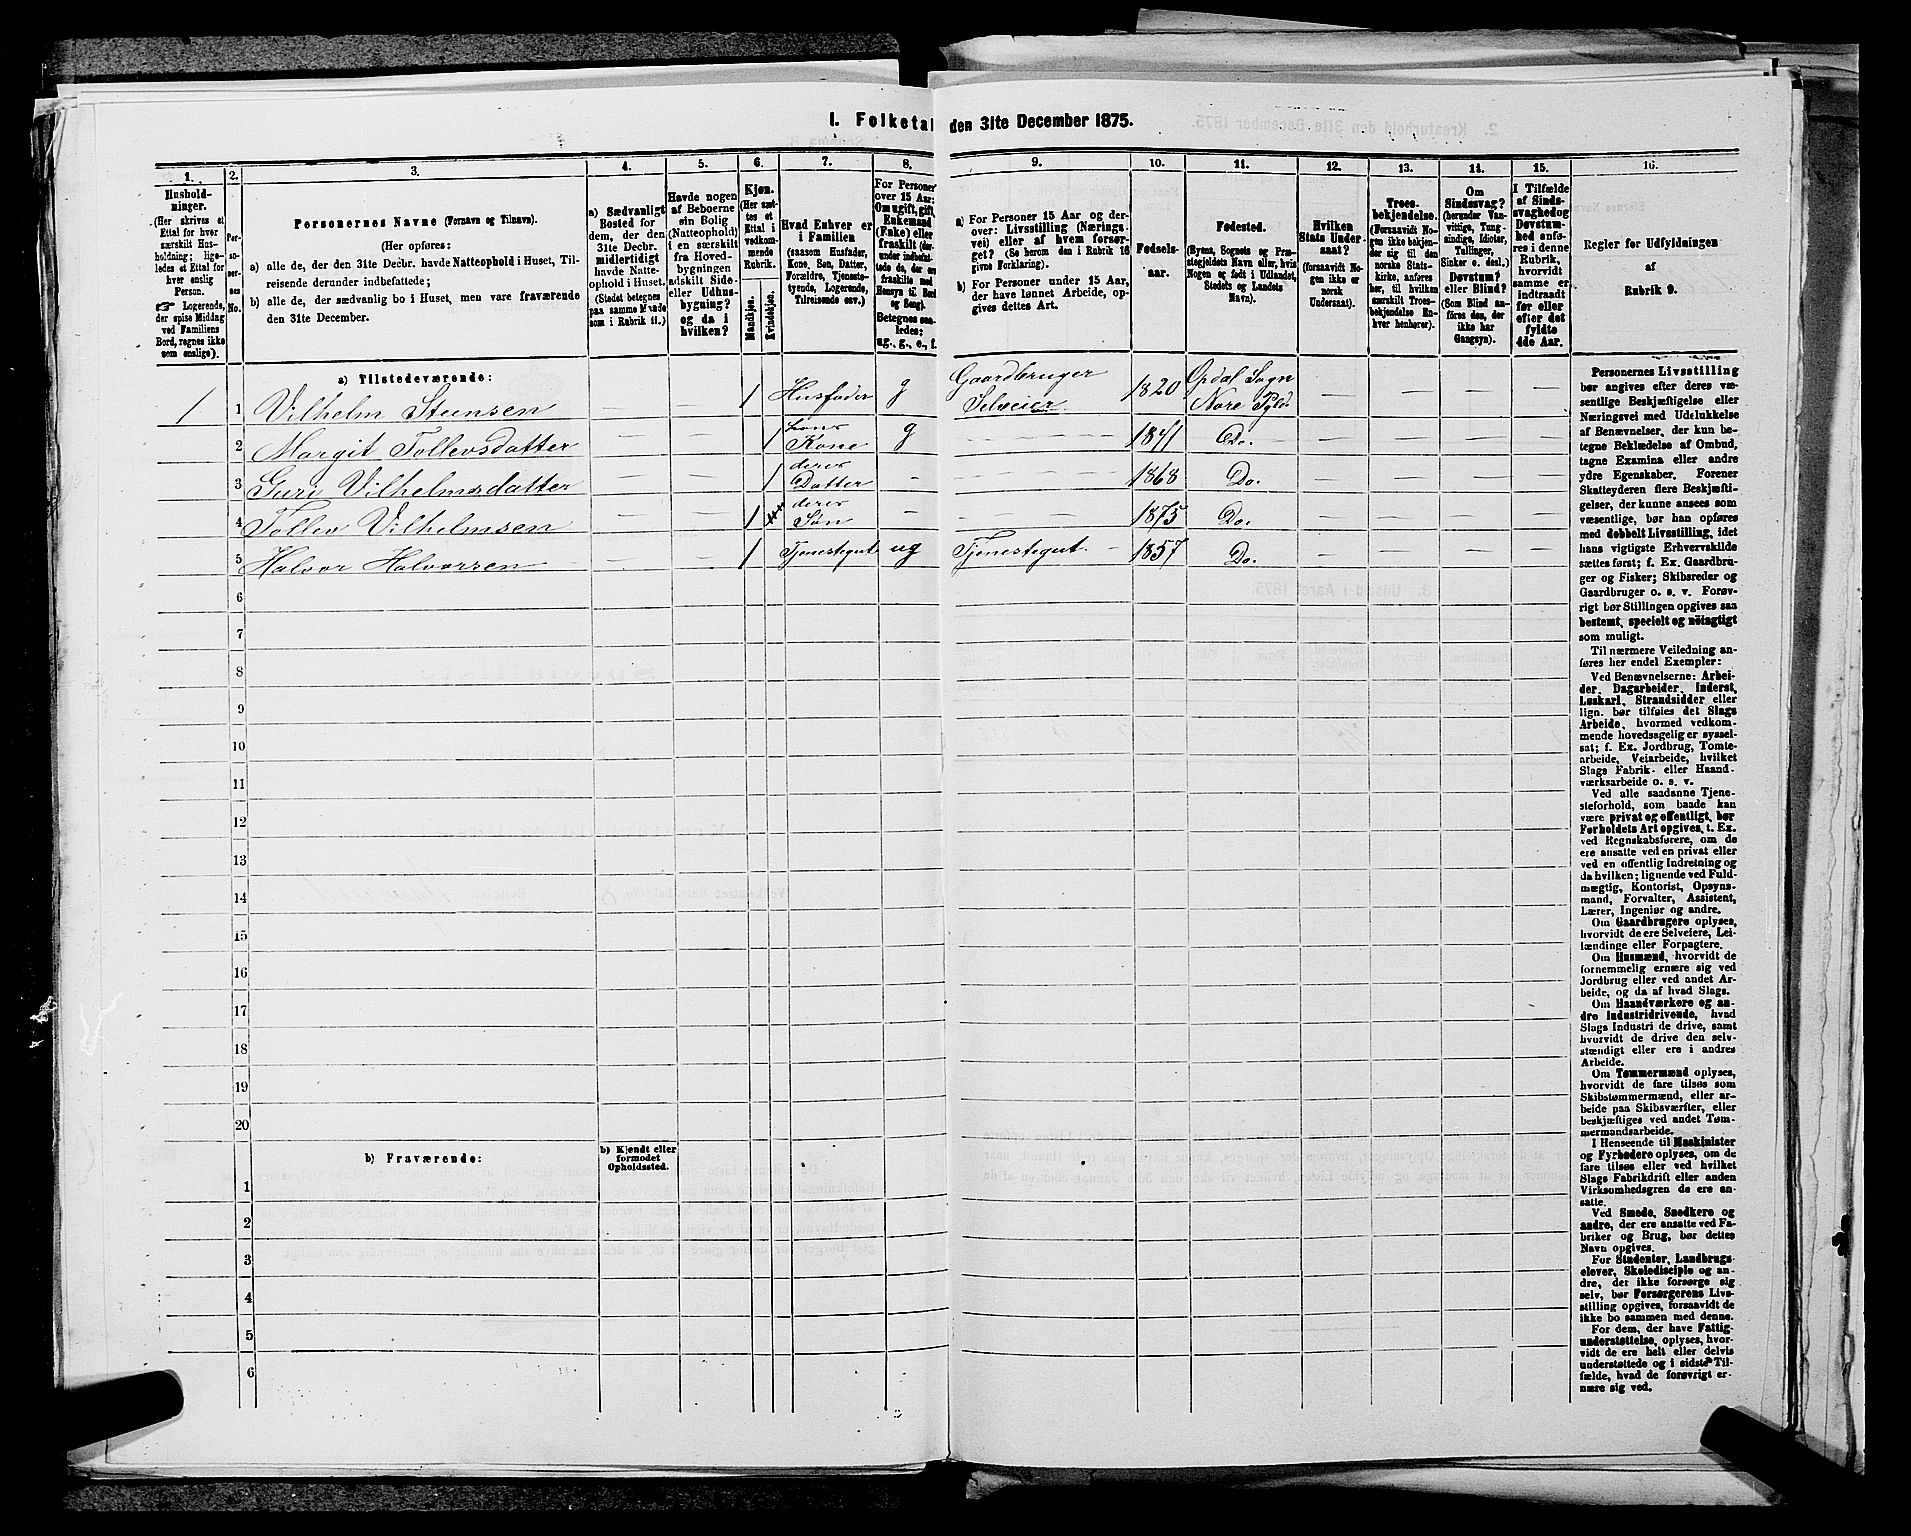 1. Folketal den 31te December 1875.
1. 2. 3. 4. 5. 6. 7. 8. 9. 10. 11. 12. 13. 14. 15. 16.
Hushold-
ninger.
(Her skrives et
Ettal for hver
særskilt Hus-
holdning; lige-
ledes et Ettal for
hver enslig
Person.
☞ Logerende,
der spise Middag
ved Familiens
Bord, regnes ikke
som enslige).
Per-
soner-
nes
No.
Personernes Navne (Fornavn og Tilnavn).
(Her opføres:
a) alle de, der den 31te Decbr. havde Natteophold i Huset, Til-
reisende derunder indbefattede;
b) alle de, der sædvanlig bo i Huset, men vare fraværende
den 31te December.
a) Sædvanligt
Bosted for
dem, der den
31te Decbr.
midlertidigt
havde Natte-
ophold i Huset.
(Stedet betegnes
paa samme Maade
som i Rubrik 11.)
Havde nogen
af Beboerne
sin Bolig
(Natteophold)
i en særskilt
fra Hoved-
bygningen
adskilt Side-
eller Udhus-
bygning?
og da i
hvilken?
Kjøn.
(Her sæt-
tes et
Ettal i
vedkom-
mende
Rubrik.
Mandkjøn.
Kvindekjøn.
Hvad Enhver er
i Familien
(saasom Husfader,
Kone, Søn, Datter,
Forældre, Tjeneste-
tyende, Logerende,
Tilreisende osv.)
For Personer
over 15 Aar:
Om ugift, gift,
Enkemand
(Enke) eller
fraskilt (der-
under indbefat-
tede de, der ere
fraskilte med
Hensyn til Bord
og Seng).
Betegnes saa-
ledes:
ug., g., e., f.
a) For Personer 15 Aar og der-
over: Livsstilling (Nærings-
vei) eller af hvem forsør-
get? (Se herom den i Rubrik 16
givne Forklaring).
b) For Personer under 15 Aar,
der have lønnet Arbeide, op-
gives dettes Art.
Fødsels-
aar.
Fødested.
(Byens, Sognets og Præ-
stegjeldets Navn eller, hvis
Nogen er født i Udlandet,
Stedets og Landets
Navn).
Hvilken
Stats Under-
saat?
(forsaavidt No-
gen ikke er
norsk
Undersaat).
Troes-
bekjendelse.
(Forsaavidt No-
gen ikke bekjen-
der sig til den
norske Stats-
kirke, anføres
her, til hvilken
særskilt Troes-
bekjendelse En-
hver henhører).
Om
Sindssvag?
(herunder Van-
vittige, Tung-
sindige, Idioter,
Tullinger,
Sinker o. desl.)
Døvstum?
eller Blind?
(Som Blind an-
føres den, der
ikke har
Gangsyn).
I Tilfælde
af Sinds-
svaghed og
Døvstum-
hed anfø-
res i denne
Rubrik,
hvorvidt
samme er
indtraadt
før eller
efter det
fyldte
4de Aar.
Regler for Udfyldningen
af
Rubrik 9.
a) Tilstedeværende:
1 1 Vilhelm Stensen — — 1 Husfader g Gaardbruger Selveier 1820 Opdal Sogn Nore — — — —
2 Margit Tollevsdatter — — 1 hans Kone g — 1841 Do. — — — —
3 Guri Vilhelmsdatter — — 1 deres Datter — — 1868 Do. — — — —
4 Tollev Vilhelmsen — — 1 deres Søn — — 1875 Do. — — — —
5 Halvor Halvorsen — — 1 Tjenestegut ug Tjenestegut. — 1857 Do. — — — —
6
7
8
9
10
11
12
13
14
15
16
17
18
19
20
b) Fraværende:
b) Kjendt eller
formodet
Opholdssted.
1
2
3
4
5
6
Personernes Livsstilling
bør angives efter deres væ-
sentlige Beskjæftigelse eller
Næringsvei med Udelukkelse
af Benævnelser, der kun be-
tegne Beklædelse af Ombud,
tagne Examina eller andre
ydre Egenskaber. Forener
Skatteyderen flere Beskjæfti-
gelser, der kunne ansees som
væsentlige, bør han opføres
med dobbelt Livsstilling, idet
hans vigtigste Erhvervskilde
sættes først; f. Ex. Gaardbru-
ger og Fisker; Skibsreder og
Gaardbruger o. s. v. Forøv-
rigt bør Stillingen opgives saa
bestemt, specielt og nøiagtigt
som muligt.
Til nærmere Veiledning an-
føres her endel Exempler:
Ved Benævnelserne: Arbei-
der, Dagarbeider, Inderst,
Løskarl, Strandsidder eller
lign. bør tilføies det Slags
Arbeide, hvormed vedkom-
mende hovedsagelig er syssel-
sat; f. Ex. Jordbrug, Tomte-
arbeide, Veiarbeide, hvilket
Slags Fabrik- eller Haand-
værksarbeide o. s. v.
Ved alle saadanne Tjene-
steforhold, som baade kan
være privat og offentligt, bør
Forholdets Art opgives, t. Ex.
ved Regnskabsførere, om de
ere ansatte ved en privat eller
ved en offentlig Indretning og
da hvilken; lignende ved Fuld-
mægtig, Kontorist, Opsyns-
mand, Forvalter, Assistent,
Lærer, Ingeniør og andre.
Om Gaardbrugere oplyses,
hvorvidt de ere Selveiere, Lei-
lændinge eller Forpagtere.
Om Husmænd, hvorvidt de
fornemmelig ernære sig ved
Jordbrug eller ved andet Ar-
beide, og da af hvad Slags.
Om Haandværkere og an-
dre Industridrivende, hvad
Slags Industri de drive, samt
hvorvidt de drive den selv-
stændigt eller ere i andres
Arbeide.
Om Tømmermænd oplyses,
hvorvidt de fare tilsøs som
Skibstømmermænd, eller ar-
beide paa Skibsværfter, eller
beskjæftiges ved andet Tøm-
mermandsarbeide.
I Henseende til Maskinister
og Fyrbødere oplyses, om de
fare tilsøs eller ved hvilket
Slags Fabrikdrift eller anden
Virksomhedsgren de ere an-
satte.
Ved Smede, Snedkere og
andre, der ere ansatte ved Fa-
briker og Brug, bør dettes
Navn opgives.
For Studenter, Landbrugs-
elever, Skoledisciple og an-
dre, der ikke forsørge sig
selv, bør Forsørgerens Livs-
stilling opgives, forsaavidt de
ikke bo sammen med denne.
For dem, der have Fattig-
understøttelse, oplyses, hvor-
vidt de ere helt eller delvis
understøttede og i sidste Til-
fælde, hvad de forøvrigt er-
nære sig ved.